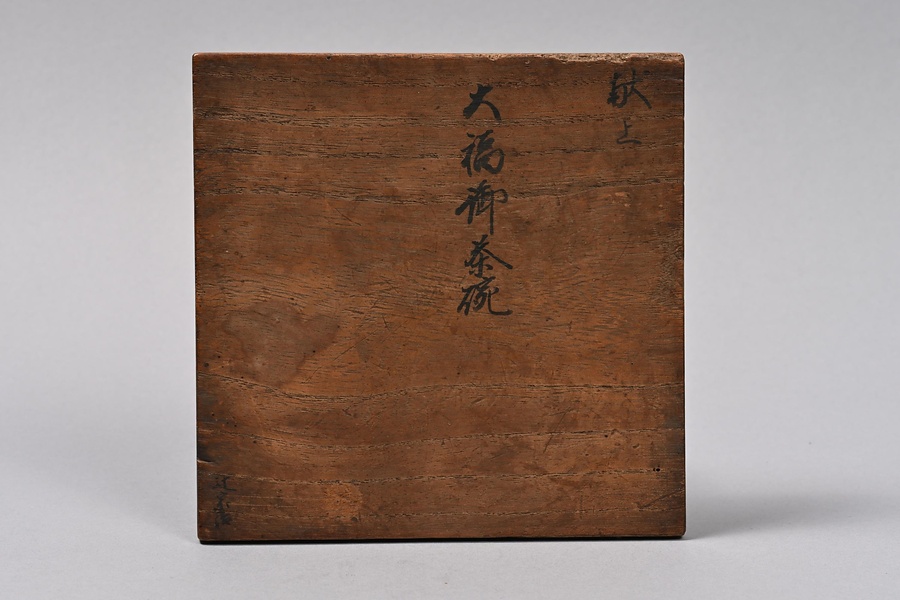 献上
大福御茶碗